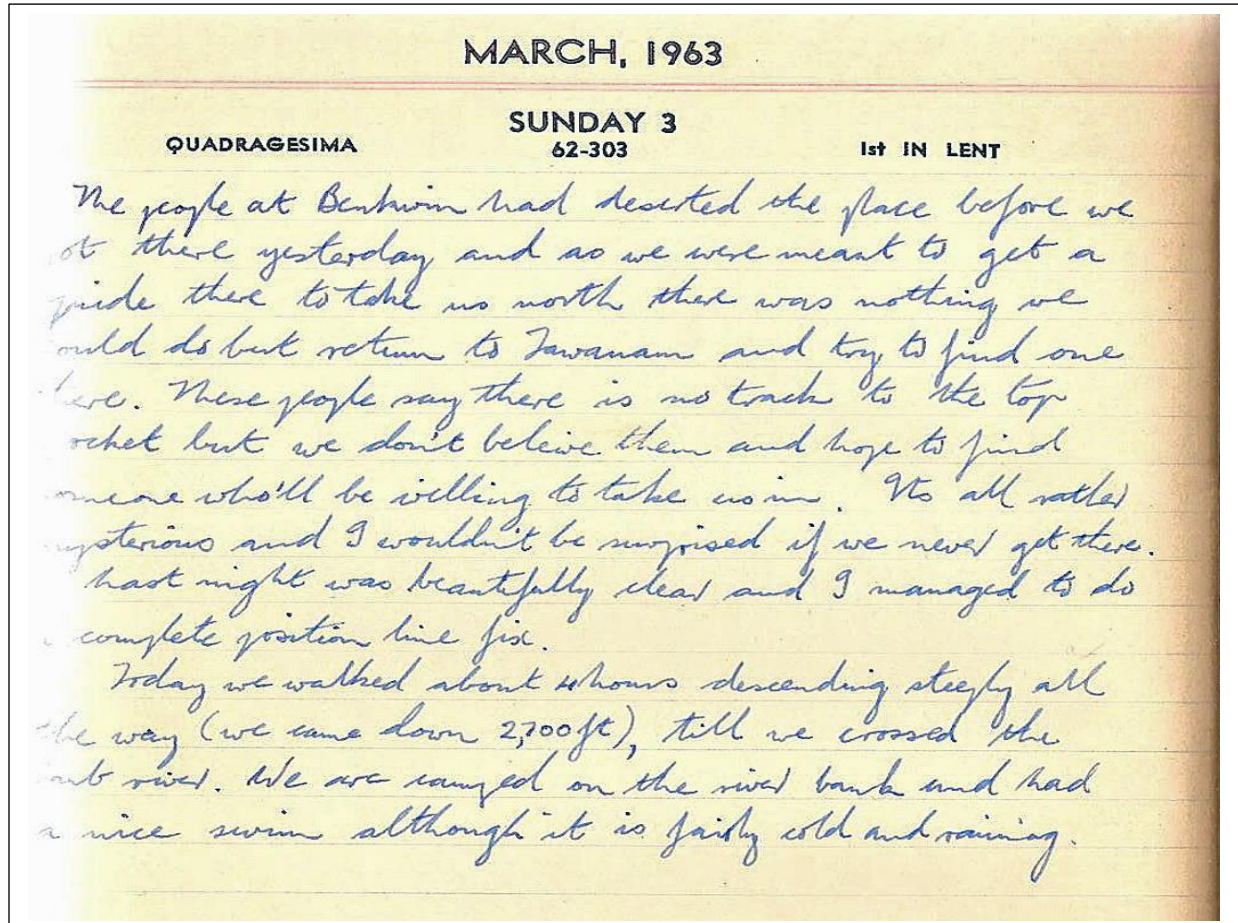 MARCH, 1963
SUNDAY 3
QUADRAGESIMA 62-303 1st IN LENT
The people at Benkwin had deserted the place before we
ot there yesterday and as we were meant to get a
guide there to take us north there was nothing we
ould do but return to Tawanam and try to find one
here. These people say there is no track to the top
ocket but we don't beleive them and hope to find
omeone who'll be willing to take us in. Its all rather
mysterious and I wouldn't be surprised if we never get there.
Last night was beautifully clear and I managed to do
a complete position line fix.
Today we walked about 4 hours descending steeply all
the way (we came down 2,700ft), till we crossed the
river. We are camped on the river bank and had
a nice swim although it is fairly cold and raining.